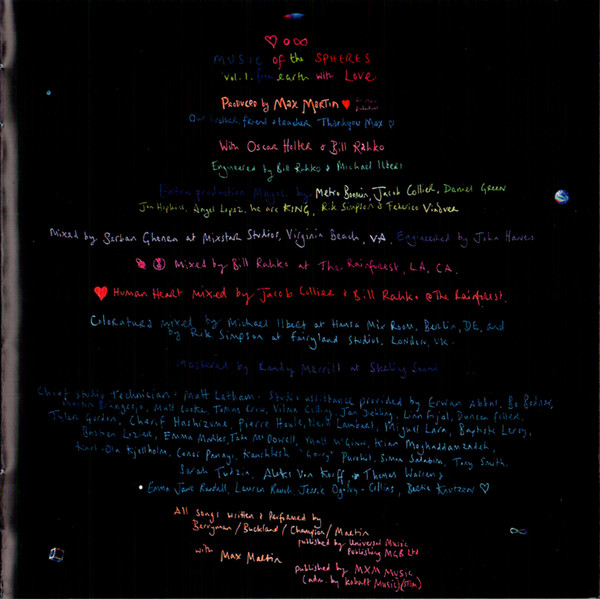 ♡ o ∞
MUSIC of the SPHERES
vol. 1. from earth with Love
Produced by Max Martin ♥
Our brother, friend & teacher Thankyou Max
With Oscar Holter & Bill Rahko
Engineered by Bill Rahko & Michael Ilbert
Extra production Magic by Metro Boomin, Jacob Collier, Daniel Green
Jon Hopkins, Angel Lopez, We are KING, Rik Simpson & Federico Vindver
Mixed by Serban Ghenea at Mixstar Studios, Virginia Beach, VA. Engineered by John Hanes
Mixed by Bill Rahko at The Rainforest, LA, CA.
♥ Human Heart mixed by Jacob Collier & Bill Rahko @ The Rainforest.
Coloratura mixed by Michael Ilbert at Hansa Mix Room, Berlin, DE, and
by Rik Simpson at Fairyland Studios, London, UK.
Mastered by Randy Merrill at Sterling Sound
Chief studio Technician · Matt Latham · Studio assistance provided by Erwan Abbas, Bo Bodnar,
Matt Cooke, Tommy Vilma Colling, Jan Linn Fijal, Duncan Fuller,
Tyler Gordon, Cherif Hashizume, Pierre Houle, Neil Lambert, Miguel Lara, Baptiste Leroy,
Bastien Lozier, Emma Marks, Tate McDowell, Matt McGinn, Kian Moghaddamzadeh,
Karl-Ola Kjellholm, Conor Panayi, Kaushlesh "Garry" Purohit, Simon Sadatin, Tony Smith,
Sarah Tudzin, Aleks Von Korff, & Thomas Warren &
Emma Jane Randell, Lauren Rauch, Jessie Ogilvy-Collins, Beatie Knutzen ♡
All songs written & Performed by
Berryman / Buckland / Champion / Martin
published by Universal Music
Publishing MGB Ltd
with Max Martin
published by MXM Music
(adm. by Kobalt Music) (STIM)
∞